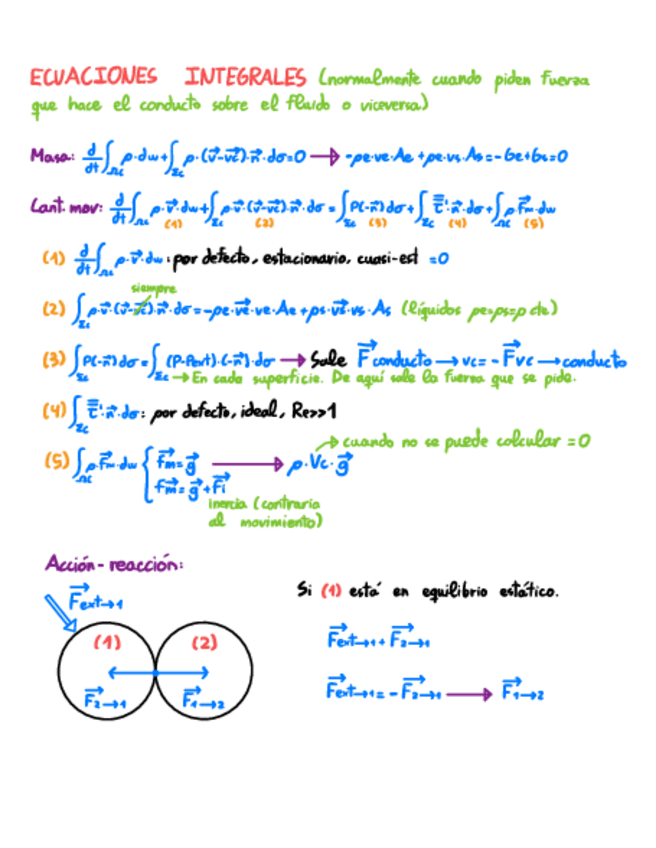 ECUACIONES INTEGRALES (normalmente cuando piden fuerza
que hace el conducto sobre el fluido o viceversa)
Masa: d/dt ∫_Ωc ρ·dw + ∫_Σc ρ·(v⃗-v⃗c)·n⃗·dσ=0 → -ρe·ve·Ae + ρe·vs·As = -Ge+Gs=0
Cant. mov: d/dt ∫_Ωc ρ·v⃗·dw + ∫_Σc ρ·v⃗·(v⃗-v⃗c)·n⃗·dσ = ∫_Σc P(-n⃗)dσ + ∫_Σc τ̿'·n⃗·dσ + ∫_Ωc ρ·f⃗m·dw
(1) (2) (3) (4) (5)
(1) d/dt ∫_Ωc ρ·v⃗·dw : por defecto, estacionario, cuasi-est =0
siempre
(2) ∫_Σc ρ·v⃗·(v⃗-v⃗c)·n⃗·dσ = -ρe·v⃗e·ve·Ae + ρs·v⃗s·vs·As (líquidos ρe=ρs=ρ cte)
(3) ∫_Σc P(-n⃗)dσ = ∫_Σc (P-Pext)·(-n⃗)·dσ → Sale F⃗ conducto→vc = -F⃗ vc→conducto
→ En cada superficie. De aquí sale la fuerza que se pide.
(4) ∫_Σc τ̿'·n⃗·dσ : por defecto, ideal, Re>>1
→ cuando no se puede calcular =0
(5) ∫_Ωc ρ·f⃗m·dw { f⃗m=g⃗ → ρ·Vc·g⃗
f⃗m=g⃗+F⃗i
inercia (contraria
al movimiento)
Acción-reacción:
Si (1) está en equilibrio estático.
F⃗ext→1
(1) (2)
F⃗ext→1 + F⃗2→1
F⃗2→1 F⃗1→2
F⃗ext→1 = -F⃗2→1 → F⃗1→2